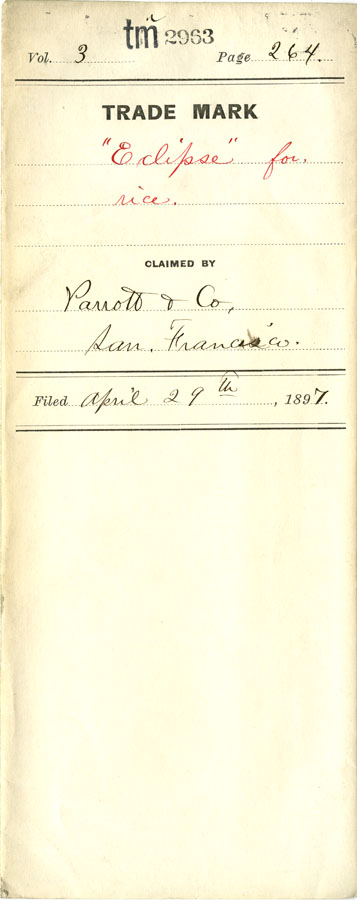 tm 2963
Vol. 3 Page 264.
TRADE MARK
"Eclipse" for
rice.
CLAIMED BY
Parrott & Co,
San. Francisco.
Filed April 29th, 1897.